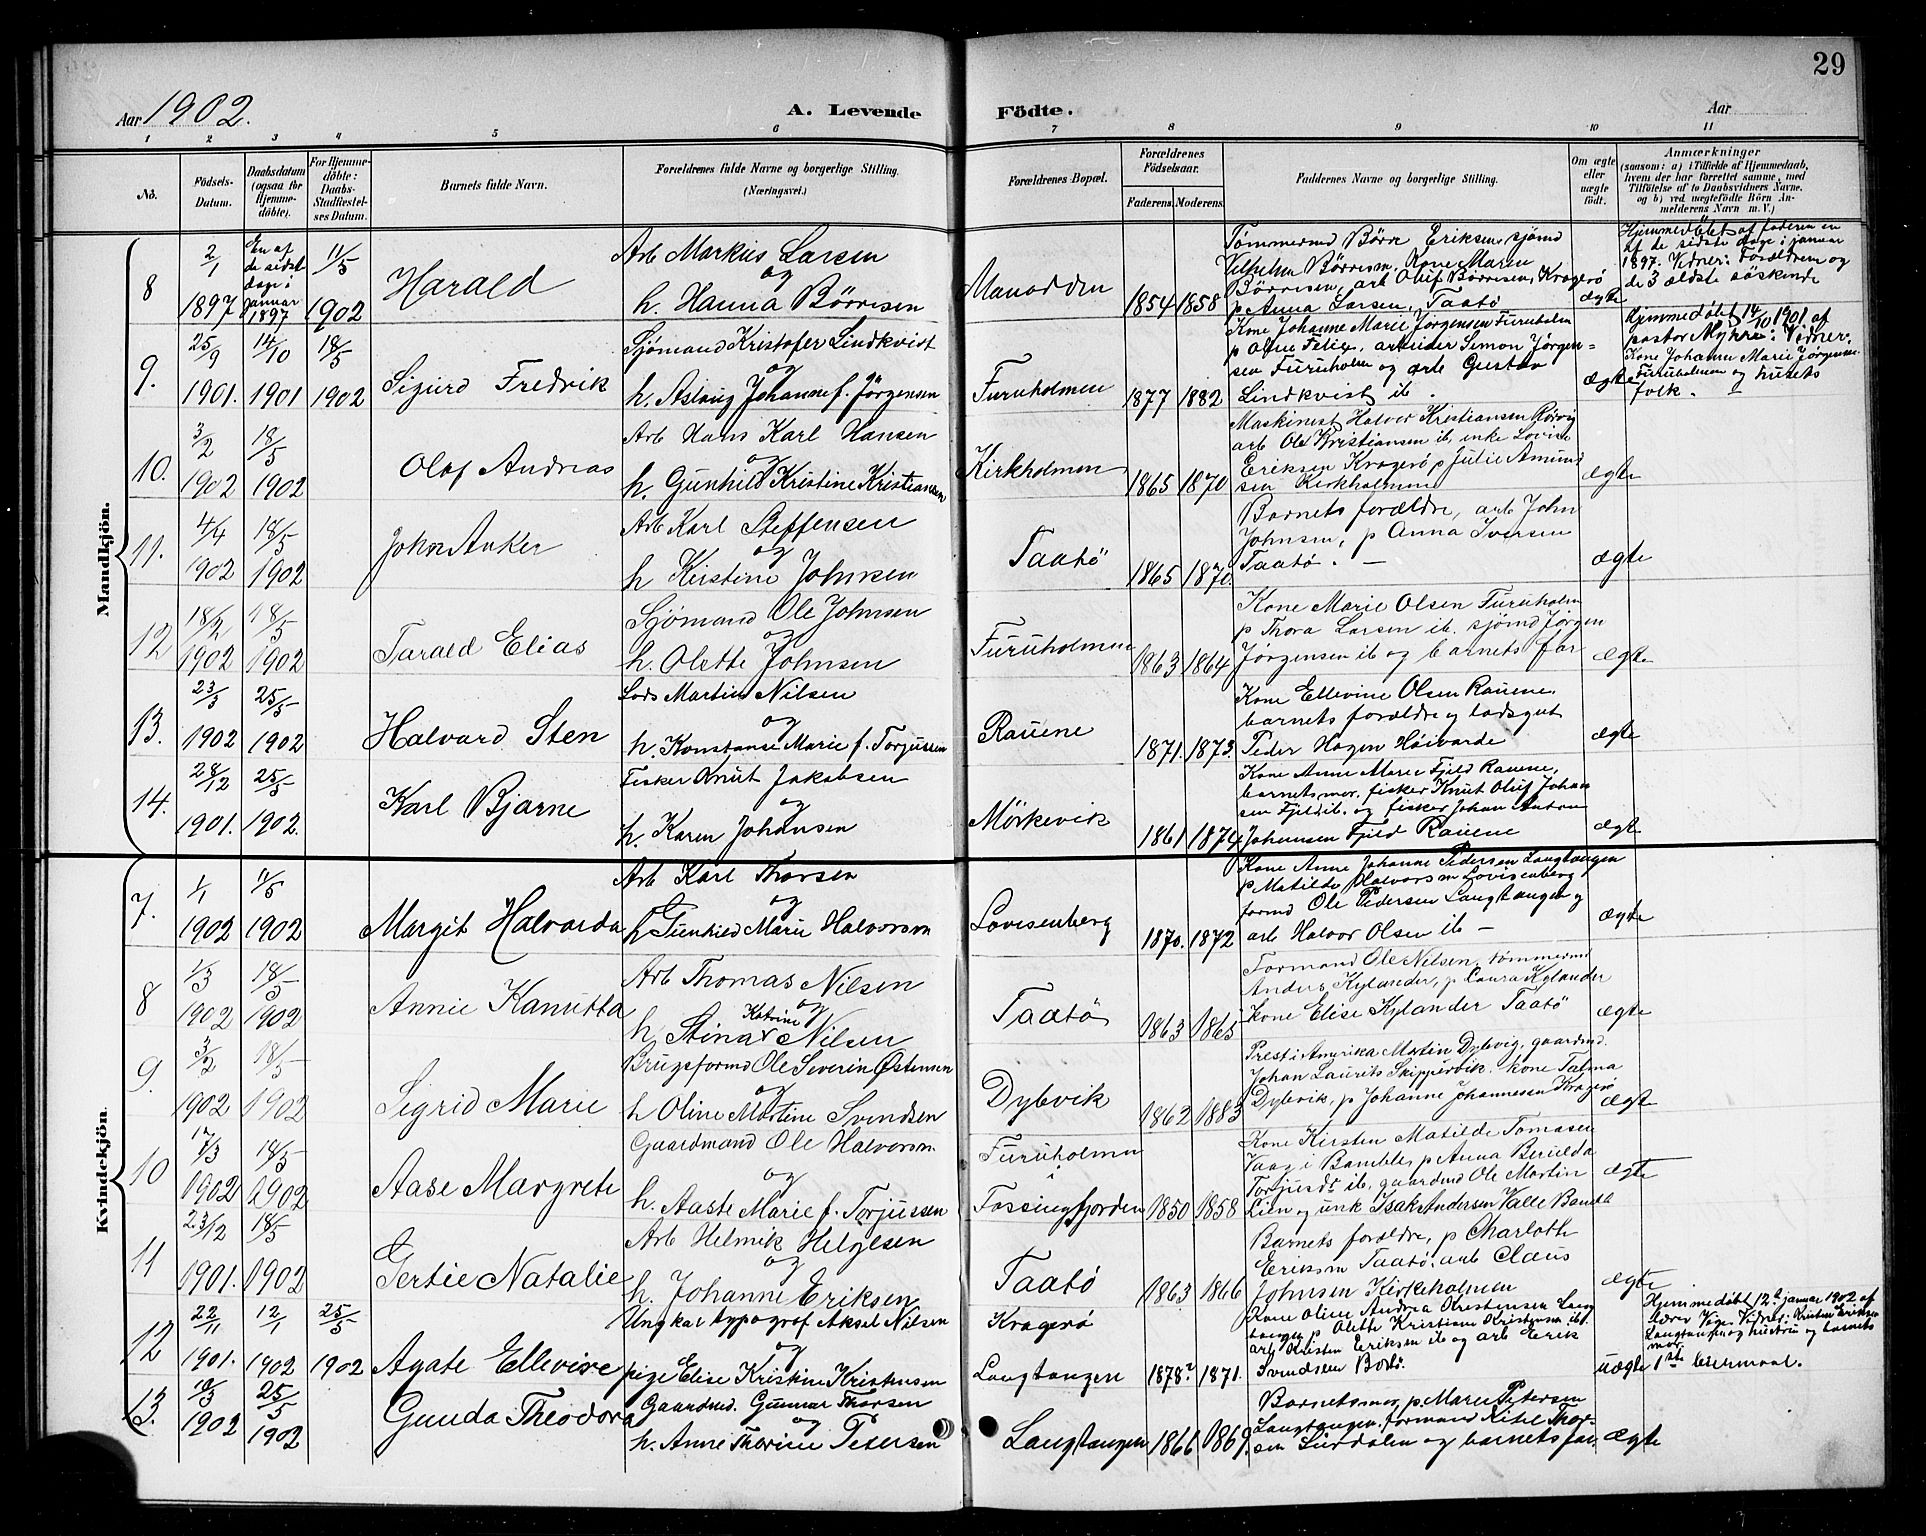 29
Aar 1902.
A. Levende Födte.
Aar
1 2 3 4 5 6 7 8 9 10 11
No.
Födsels-Datum.
Daabsdatum (ogsaa for Hjemme-döbte).
For Hjemme-döbte: Daabs-Stadfæstel-ses Datum.
Barnets fulde Navn.
Forældrenes fulde Navne og borgerlige Stilling. (Næringsvei.)
Forældrenes Bopæl.
Forældrenes Födselsaar.
Faderens. Moderens.
Faddernes Navne og borgerlige Stilling.
Om ægte eller uægte födt.
Anmærkninger
(saasom: a) i Tilfælde af Hjemmedaab, hvem der har forrettet samme, med Tilföielse af to Daabsvidners Navne, og b) ved uægtefödte Börn An-melderens Navn m. V.)
Mandkjön.
8
2/1 1897
En af de sidste dage i januar 1897
11/5 1902
Harald
Arb Markus Larsen
og
h. Hanna Börresen
Manodden
1854 1858
Tømmermd Börre Eriksen, sjömd
Vilhelm Börresen, Kone Maren
Börresen, arb Oluf Börresen, Kragerö
p Anna Larsen, Taatö
ægte
Hjemmedöbt af faderen en
af de sidste dage i januar
1897. Vidner: Forældrene og
de 3 ældste söskende
9.
25/9 1901.
14/10 1901
18/5 1902
Sigurd Fredrik
Sjömand Kristofer Lindkvist
og
h. Aslaug Johanne f. Jörgensen
Furuholmen
1877 1882
Kone Johanne Marie Jörgensen Furuholm
p Oline Felix, arbeider Simon Jörgen-
sen Furuholm og arb Gustav
Lindkvist ib.
ægte
Hjemmedöbt 14/10 1901 af
pastor Myhre: Vidner:
Kone Johanne Marie Jörgensen
Furuholmen og husets
folk. -
10.
3/2 1902
18/5 1902
Olaf Andreas
Arb Hans Karl Hansen
og
h. Gunhild Kristine Kristiansen
Kirkholmen
1865 1870
Maskinest Halvor Kristiansen Rörvig
arb Ole Kristiansen ib, enke Lovise
Eriksen Kragerö p Julie Amund
sen Kirkholmen
ægte
11.
4/4 1902
18/5 1902
John Anker
Arb Karl Steffensen
og
h Kirstine Johnsen
Taatö
1865 1870.
Barnets forældre, arb John
Johnsen, p Anna Iversen
Taatö. -
ægte
12
18/2 1902
18/5 1902
Tarald Elias
Sjömand Ole Johnsen
og
h. Olette Johnsen
Furuholmen
1863 1864
Kone Marie Olsen Furuholm
p Thora Larsen ib. sjömd Jörgen
Jörgensen ib og barnets far
ægte
13.
23/3 1902
25/5 1902
Halvard Sten
Lods Martin Nilsen
og
h. Konstanse Marie f. Torjussen
Rauene
1871. 1873.
Kone Ellevine Olsen Rauene.
barnets forældre og lodsgut
Peder Hagen Höivarde
ægte
14.
28/12 1901.
25/5 1902.
Karl Bjarne
Fisker Knut Jakobsen
og
h. Karen Johansen
Mörkevik
1861 1874
Kone Anne Marie Fjeld Rauene,
barnets mor, fisker Knut Oluf Johan
sen Fjeld ib. og fisker Johan Anton
Johansen Fjeld Rauene
ægte
Kvindekjön.
7.
1/1 1902
11/5 1902
Margit Halvarda
Arb Karl Thorsen
og
h Gunhild Marie Halvorsen
Lovisenberg
1870. 1872
Kone Anne Johanne Pedersen Langtangen
p Matilde Halvorsen Lovisenberg
formd Ole Pedersen Langtangen og
arb Halvor Olsen ib -
ægte
8
1/3 1902
18/5 1902
Annie Kanutta
Arb Thomas Nilsen
og
h. Stina Katrine Nilsen
Taatö
1863 1865
Formand Ole Nilsen, tömmermd
Anders Kylander, p Laura Kylander
kone Elise Kylander Taatö
ægte
9.
3/2 1902
18/5 1902
Sigrid Marie
Brugsformd Ole Severin Østensen
og
h Oline Martine Svendsen
Dybvik
1862 1883
Prest i Amerika Martin Dybvig, gaardmd.
Johan Laurits Skippervik. kone Talma
Dybvik, p Johanne Johannesen Kragerö
ægte
10
17/3 1902
18/5 1902
Aase Margrete
Gaardmand Ole Halvorsen
og
h. Aaste Marie f. Torjussen
Furuholmen i Fossingfjorden
1850 1858
Kone Kirsten Matilde Tomasen
Vaag i Bamble, p Anna Berulda
Torjusdr ib. gaardmd Ole Martin
Lien og unk Isak Andersen Valle Bamble
ægte
11
23/12 1901.
18/5 1902
Gertie Natalie
Arb Helmik Helgesen
og
h. Johanne Eriksen
Taatö
1863 1866
Barnets forældre, p Charlotte
Eriksen Taatö. arb Claus
Johnsen Kirkeholmen
ægte
12
22/11 1901.
12/1 1902
25/5 1902
Agate Ellevine
Ungkar typograf Aksel Nilsen
og
pige Elise Kristine Kristensen
Kragerö
Langtangen
1878? 1871.
Kone Oline Andrea Kristensen Lang
tangen p Olette Kristiane Kristensen ib.
arb Kristen Eriksen ib og arb Erik
Svendsen Bortö.
uægte
Hjemmedöbt 12te januar 1902 af
Vidner: Kristen Eriksen
Langtangen og hustru og barnets
mor.
1ste leiermaal.
13.
18/3 1902
25/5 1902
Gunda Theodora
Gaardmd. Gunnar Thorsen
og
h. Anne Thorine Petersen
Langtangen
1866 1869.
Barnets mor, p Marie Petersen
Langtangen. formand Kitil Thor-
sen Surdalen og barnets far.
ægte